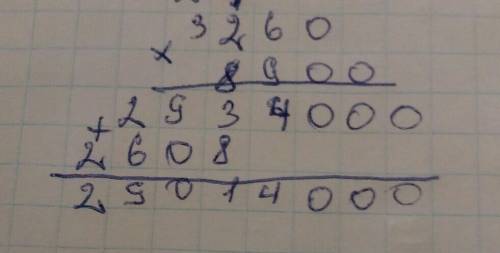 3260
× 8900
2934000
+ 2608
29014000